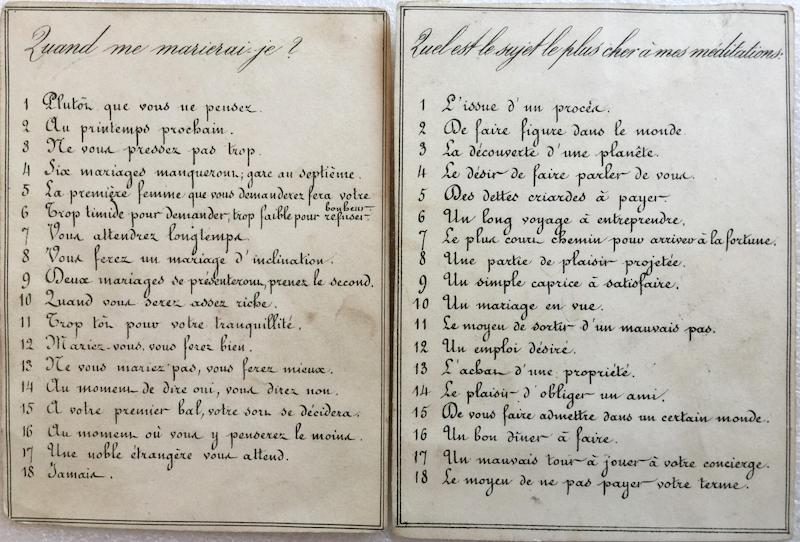 Quand me marierai-je ?
1 Plutôt que vous ne pensez.
2 Au printemps prochain.
3 Ne vous pressez pas trop.
4 Six mariages manqueront; gare au septième.
5 La première femme que vous demanderez fera votre
bonheur.
6 Trop timide pour demander, trop faible pour refuser.
7 Vous attendrez longtemps.
8 Vous ferez un mariage d'inclination.
9 Deux mariages se présenteront, prenez le second.
10 Quand vous serez assez riche.
11 Trop tôt pour votre tranquillité.
12 Mariez-vous, vous ferez bien.
13 Ne vous mariez pas, vous ferez mieux.
14 Au moment de dire oui, vous direz non.
15 A votre premier bal, votre sort se décidera.
16 Au moment où vous y penserez le moins.
17 Une noble étrangère vous attend.
18 Jamais.
Quel est le sujet le plus cher à mes méditations.
1 L'issue d'un procès.
2 De faire figure dans le monde.
3 La découverte d'une planête.
4 Le désir de faire parler de vous.
5 Des dettes criardes à payer.
6 Un long voyage à entreprendre.
7 Le plus court chemin pour arriver à la fortune.
8 Une partie de plaisir projetée.
9 Un simple caprice à satisfaire.
10 Un mariage en vue.
11 Le moyen de sortir d'un mauvais pas.
12 Un emploi désiré.
13 L'achat d'une propriété.
14 Le plaisir d'obliger un ami.
15 De vous faire admettre dans un certain monde.
16 Un bon dîner à faire.
17 Un mauvais tour à jouer à votre concierge.
18 Le moyen de ne pas payer votre terme.